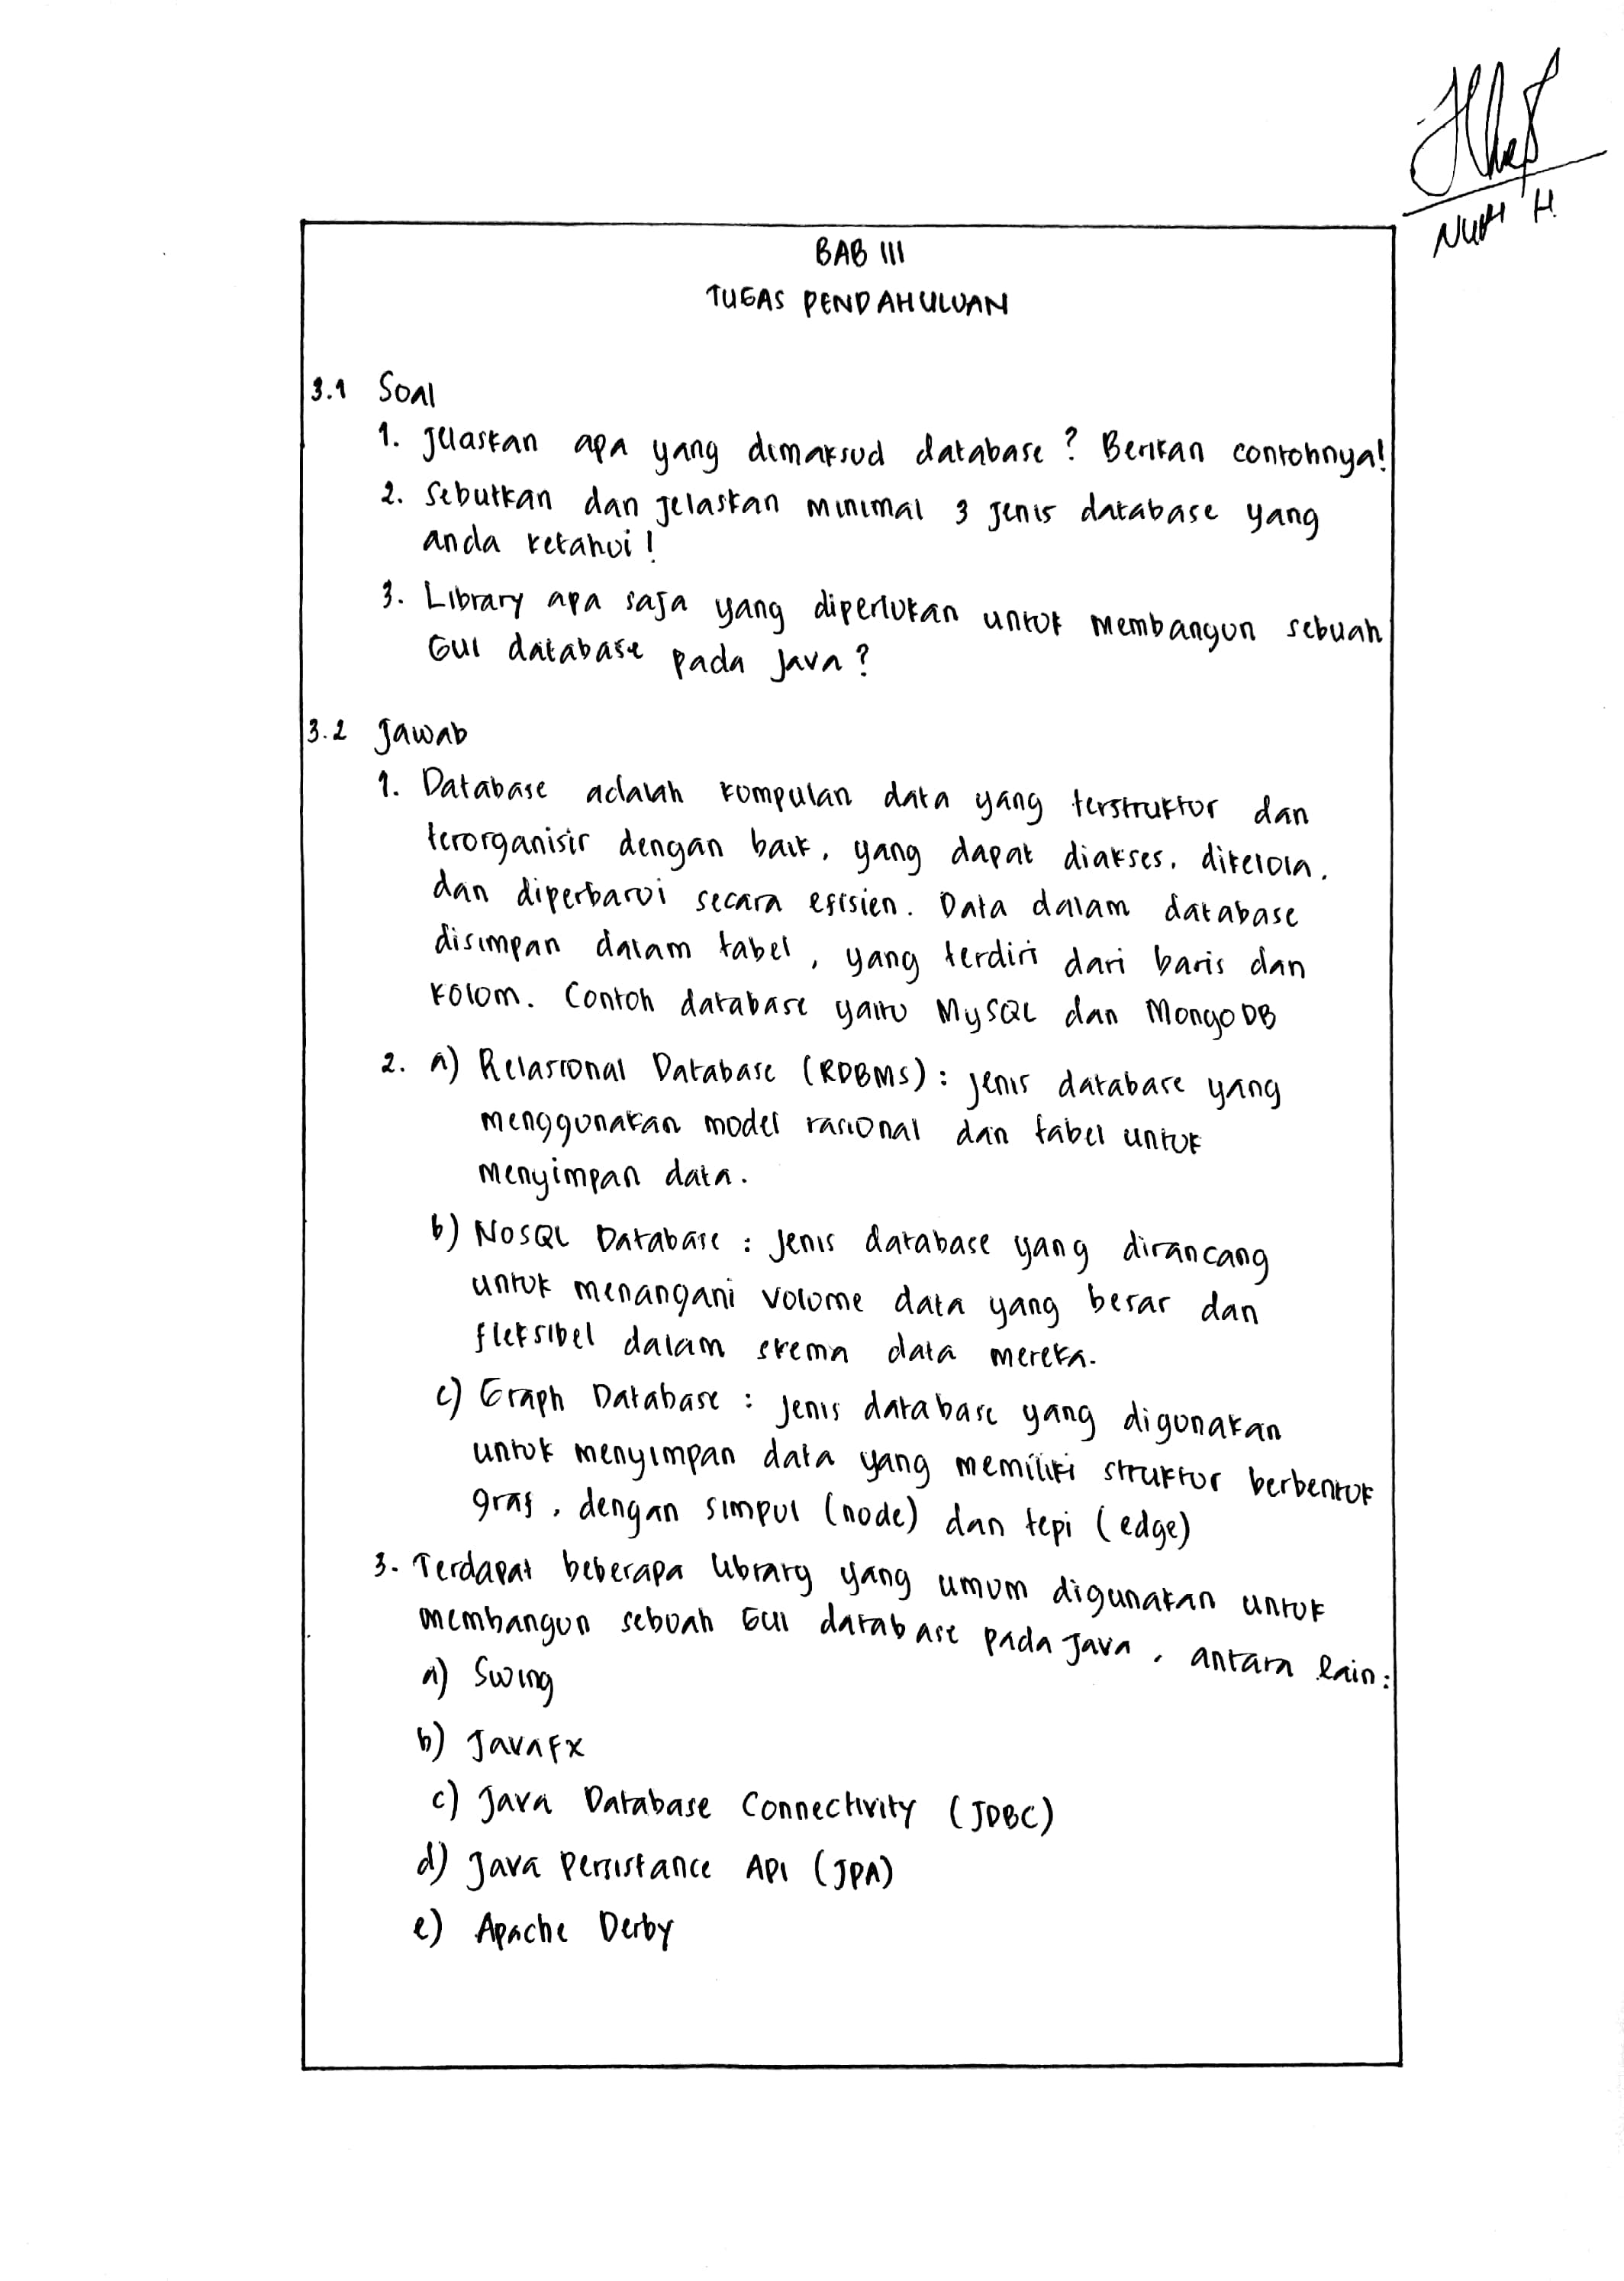 NUH H.
BAB III
TUGAS PENDAHULUAN
3.1 Soal
1. Jelaskan apa yang dimaksud database? Berikan contohnya!
2. Sebutkan dan jelaskan minimal 3 jenis database yang
anda ketahui!
3. Library apa saja yang diperlukan untuk membangun sebuah
GUI database pada Java?
3.2 Jawab
1. Database adalah kumpulan data yang terstruktur dan
terorganisir dengan baik, yang dapat diakses, dikelola,
dan diperbarui secara efisien. Data dalam database
disimpan dalam tabel, yang terdiri dari baris dan
kolom. Contoh database yaitu MySQL dan MongoDB
2. a) Relasional Database (RDBMS): jenis database yang
menggunakan model rasional dan tabel untuk
menyimpan data.
b) NoSQL Database: jenis database yang dirancang
untuk menangani volume data yang besar dan
fleksibel dalam skema data mereka.
c) Graph Database: jenis database yang digunakan
untuk menyimpan data yang memiliki struktur berbentuk
graf, dengan simpul (node) dan tepi (edge)
3. Terdapat beberapa library yang umum digunakan untuk
membangun sebuah GUI database pada Java, antara lain:
a) Swing
b) JavaFX
c) Java Database Connectivity (JDBC)
d) Java Persistance API (JPA)
e) Apache Derby